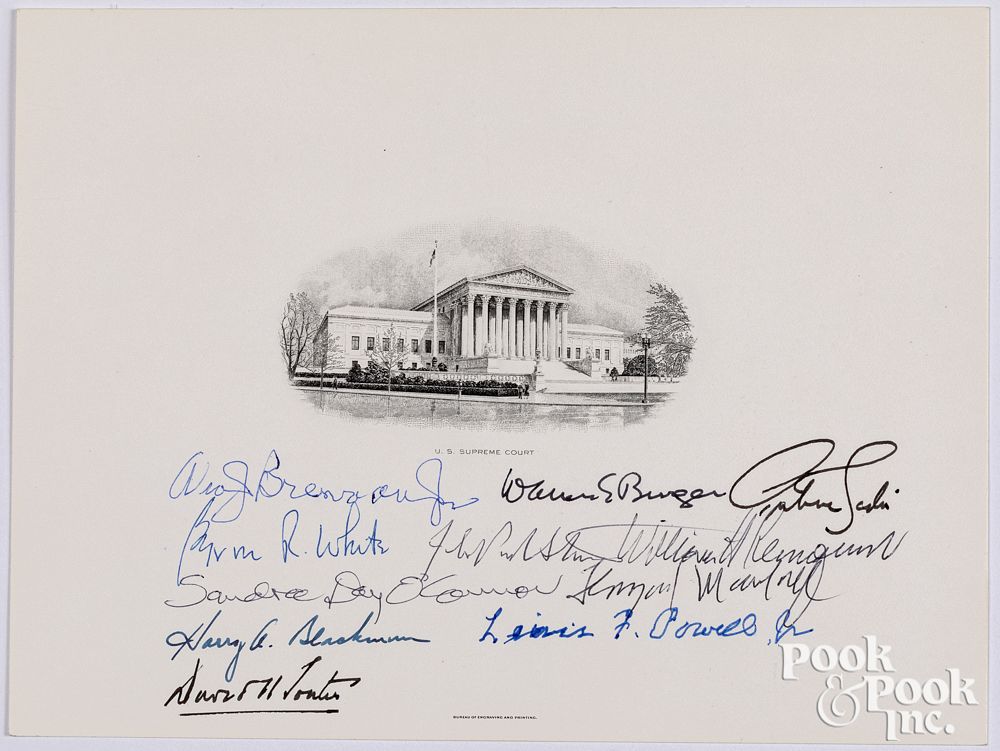 U. S. SUPREME COURT
Wm J. Brennan Jr Warren E Burger Antonin Scalia
Byron R. White John Paul Stevens William H Rehnquist
Sandra Day O'Connor Thurgood Marshall
Harry A. Blackmun Lewis F. Powell, Jr
David H Souter
BUREAU OF ENGRAVING AND PRINTING.
Pook & Pook Inc.